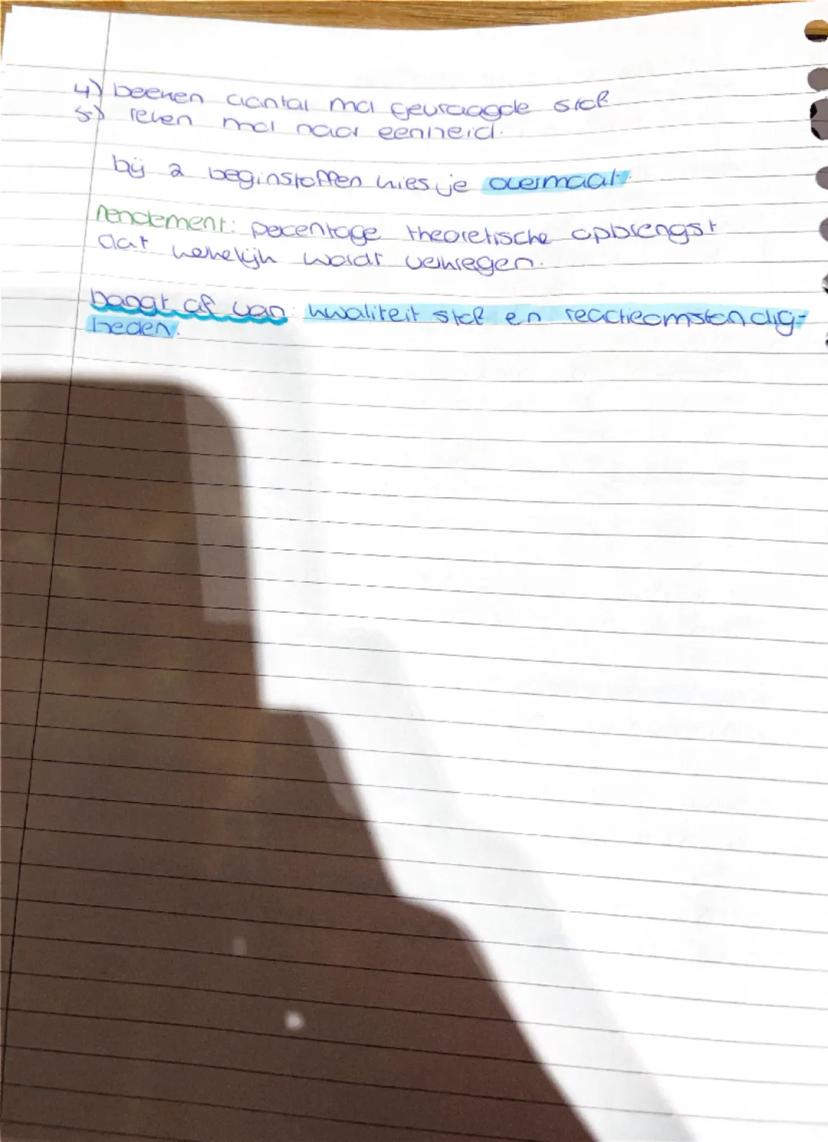 4) bereken aantal mol gevraagde stof
5) reken mol naar eenheid.
bij 2 beginstoffen kies je overmaat.
rendement: percentage theoretische opbrengst
dat werkelijk wordt verkregen.
hangt af van: kwaliteit stof en reactieomstandig-
heden.